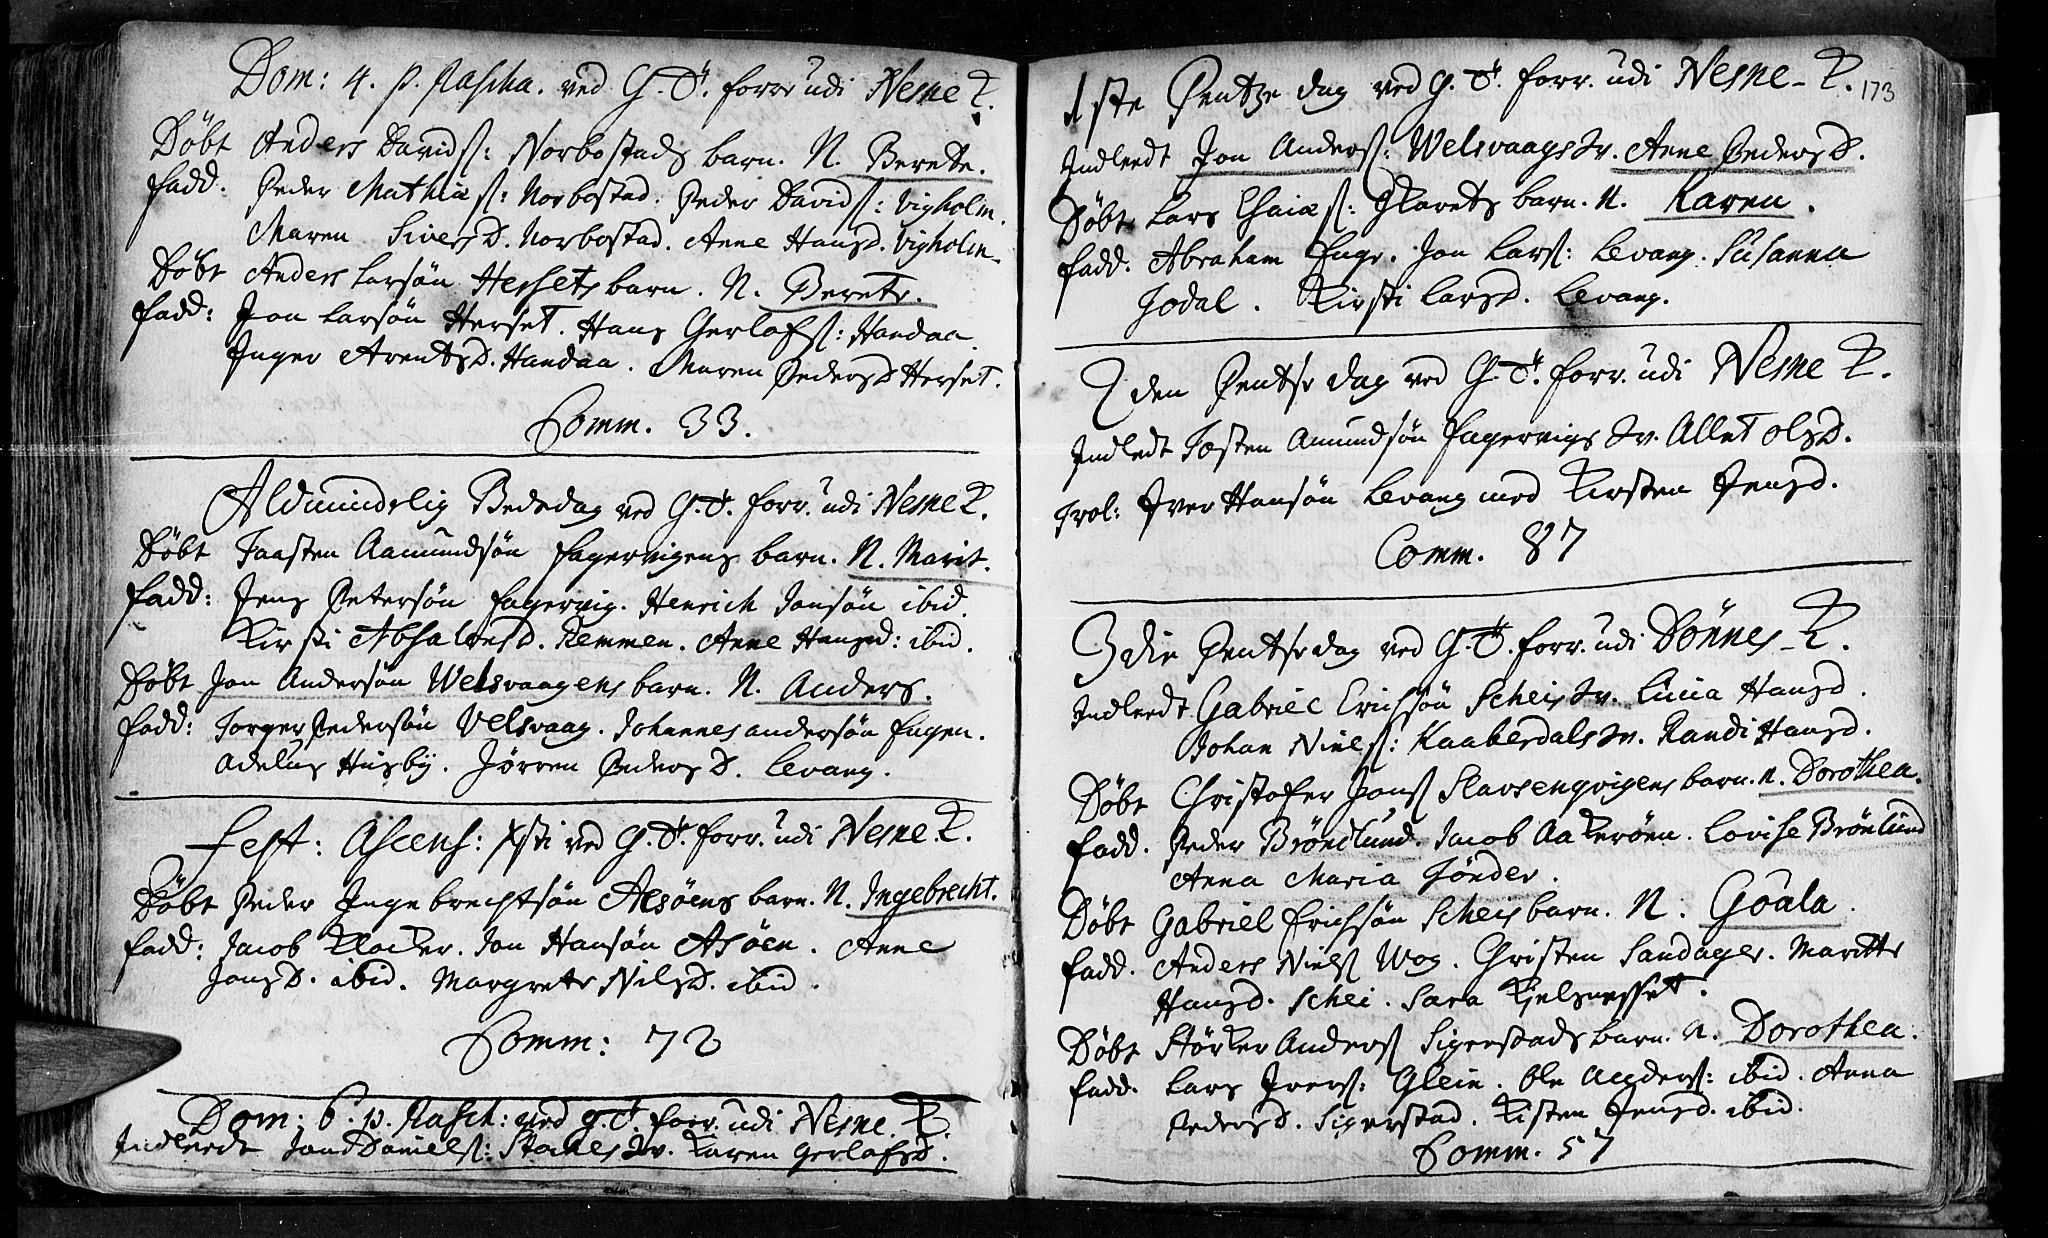 Dom: 4. p. Pascha. ved G. T. forr. udi Nesne K.
Döbt Anders Davids: Norbostads barn. N. Berete.
fadd: Peder Mathias: Norbostad. Peder Davids: Vigholm.
Maren SiversD. Norbostad. Anne HansD. Vigholm.
Döbt Anders Larsön Hersets barn. N. Berete.
fadd: Jon Larsön Herset. Hans Gerlofs: Handaa.
Inger ArentsD. Handaa. Maren PedersD Herset.
Comm. 33.
Aldmindelig Bededag ved G. T. forr. udi Nesne K.
Döbt Taasten Aamundsön fagervigens barn. N. Marit.
fadd: Jens Petersön fagervig. Henrich Jonsön ibid.
Kirsti AbsalonsD. Remmen. Anne Hansd: ibid.
Döbt Jon Andersön Welsvaagens barn. N. Anders.
fadd: Torger Pedersön Velsvaag. Johannes andersön Engen.
Adelus Husby. Jörren PedersD. Levang.
fest: Ascens: Xsti ved G. T. forr. udi Nesne K.
Döbt Peder Ingebrechtsön Alsöens barn. N. Ingebrecht.
fadd: Jacob Klocker. Jon Hansön Asöen. Anne
JonsD. ibid. Margrete NilsD. ibid.
Comm: 72
Dom: 6. p. Pasch: ved G. T. forr. udi Nesne K.
Indleedt Jon Daniels: Stoches Hv. Karen GerlofsD.
1ste Pentze dag ved G. T. forr. udi Nesne K. 173
Indleedt Jon Anders: Welsvaags Hv. Anne PedersD.
Döbt Lars Esaias: barn. N. Karen.
fadd. Abraham Enge. Jon Lars: Levang. Susanna
Jodal. Kirsti LarsD. Levang.
2den Pentse dag ved G. T. forr. udi Nesne K.
Indledt Tosten Amundsön fagervigs Hv. Allet OlsD.
Trol: Iver Hansön Levang med Kirsten JensD.
Comm. 87
3die Pentse dag ved G. T. forr. udi Dönnes K.
Indleedt Gabriel Erichsön Scheis Hv. Lucia Hansd.
Johan Niels: Kaaberdals Hv. Randi Hansd.
Döbt Christofer Jons Slavsengvigens barn. N. Dorothea.
fadd. Peder Bröndlund. Jacob Aakeröen. Lovise Brönlund
Anna Maria Tönder.
Döbt Gabriel Erichsön Scheis barn. N. Goäla.
fadd. Anders Niels Wog. Christen Sandager. Maritte
Hansd. Schei. Sara Kielsnesset.
Döbt Störker Anders Sigerstads barn. N. Dorothea.
fadd. Lars Ivers: Glein. Ole Anders: ibid. Anna
PedersD. Sigerstad. Kisten Jensd. ibid.
Comm. 57